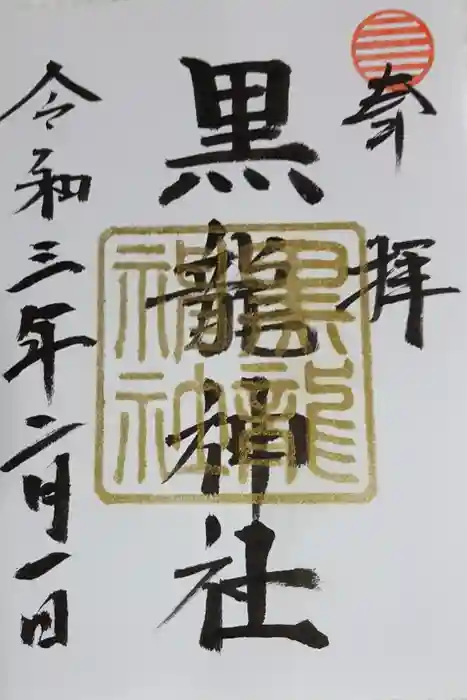 奉拝
黒龍神社
黒龍
神社
令和三年二月一日